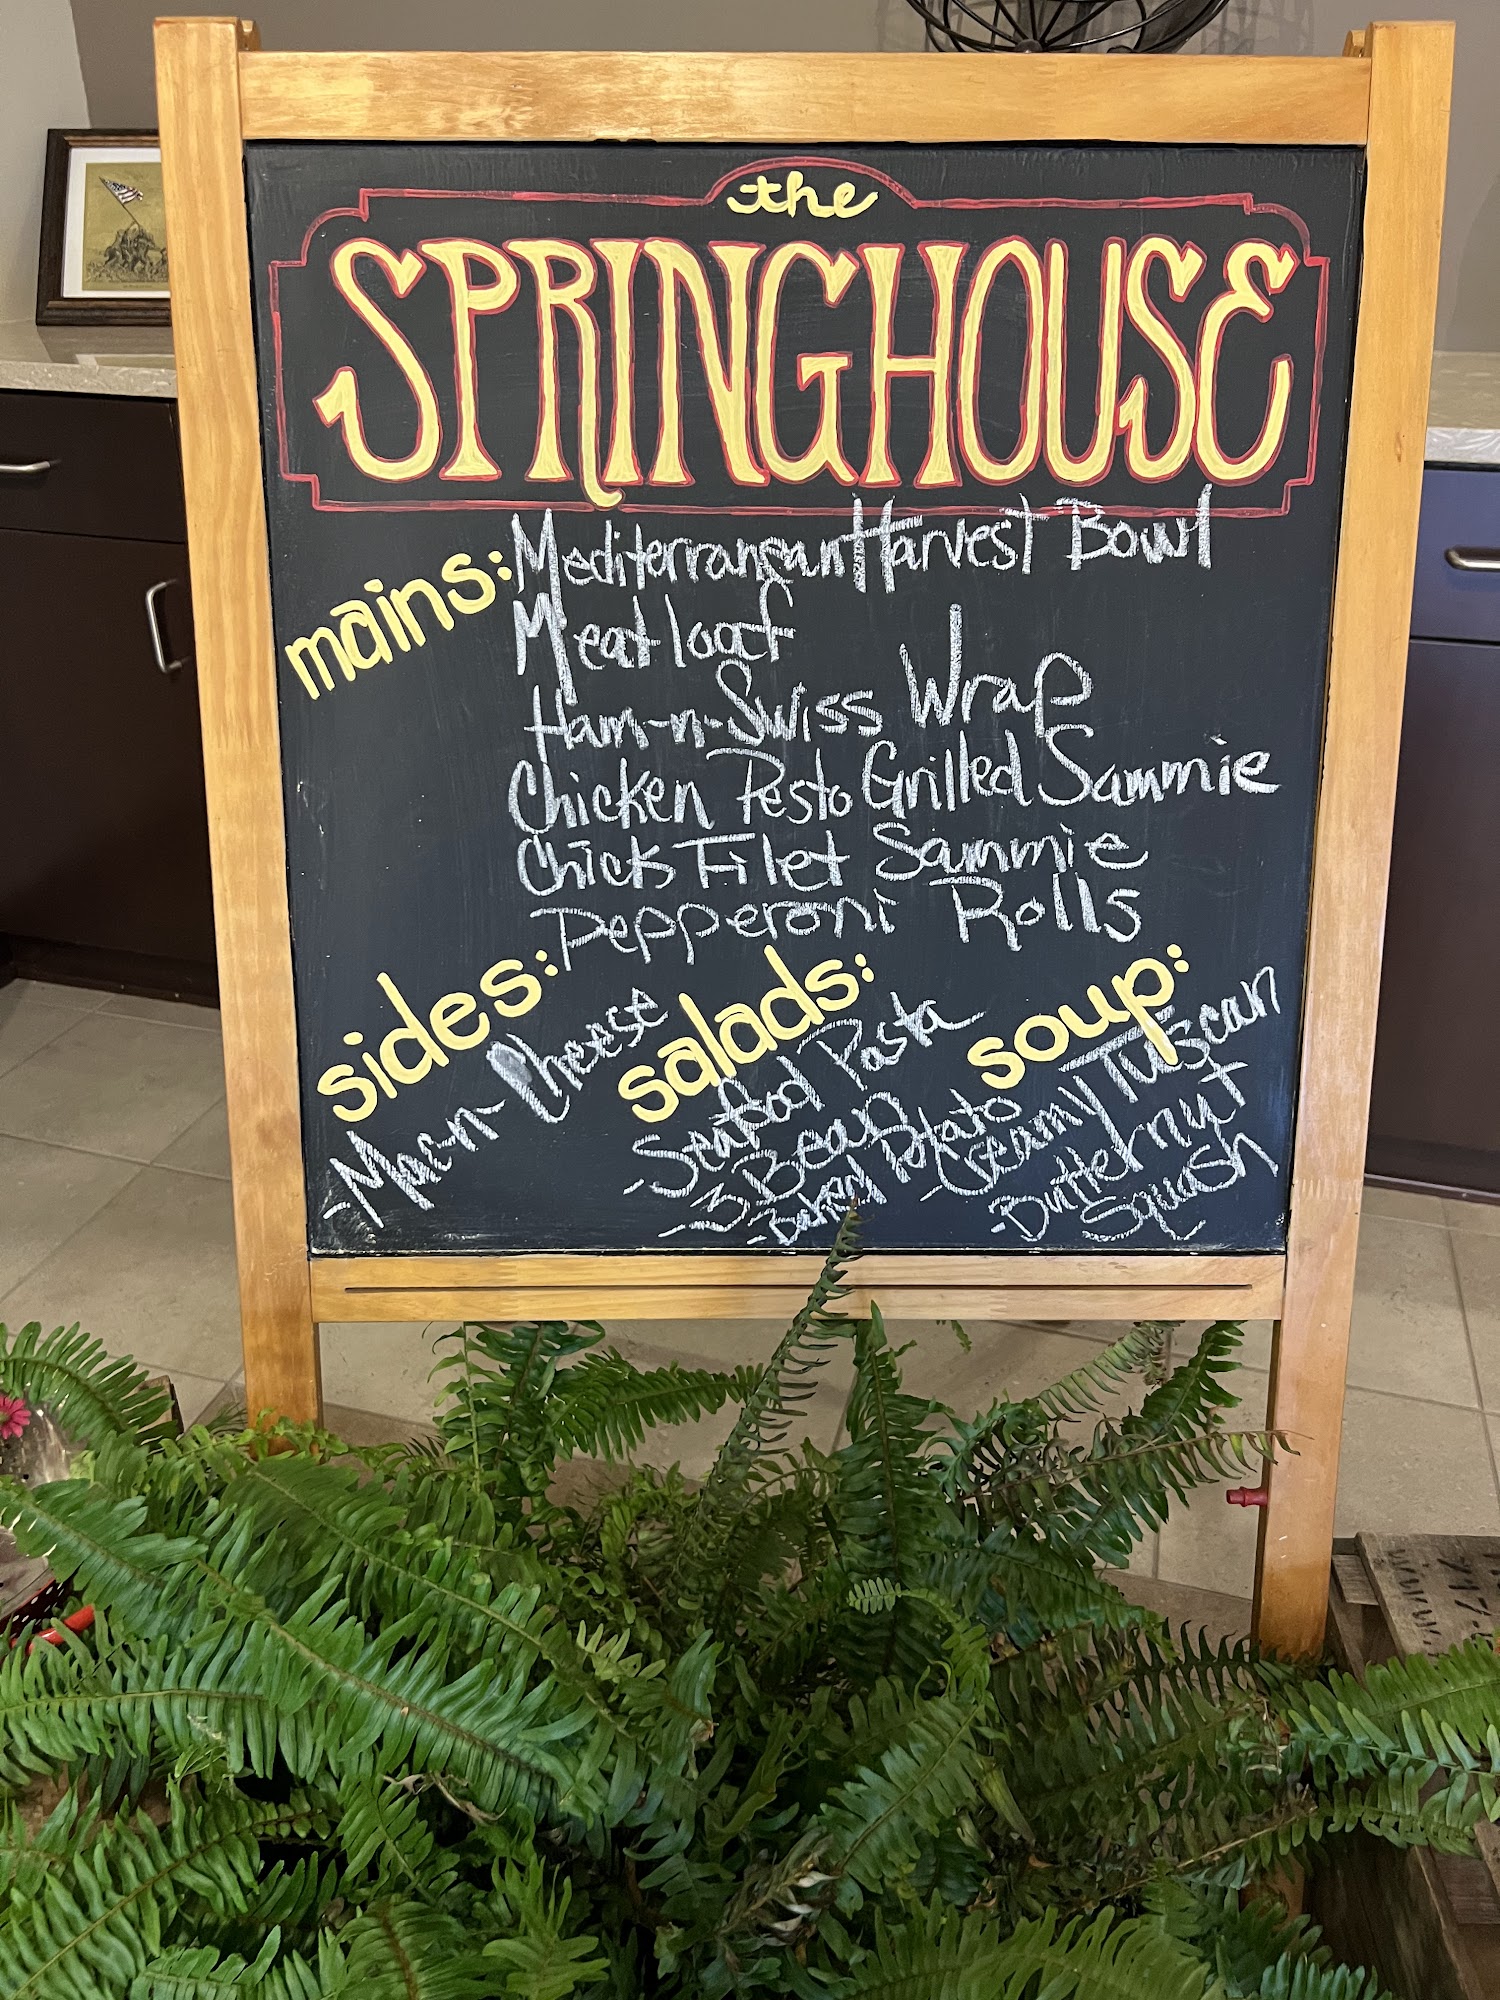 the
SPRINGHOUSE
mains:
Mediterranean Harvest Bowl
Meatloaf
Ham-n-Swiss Wrap
Chicken Pesto Grilled Sammie
Chicks Filet Sammie
Pepperoni Rolls
sides:
-Mac-n-Cheese
salads:
-Seafood Pasta
-3 Bean
-Baked Potato
soup:
-Creamy Tuscan
-Butternut
Squash